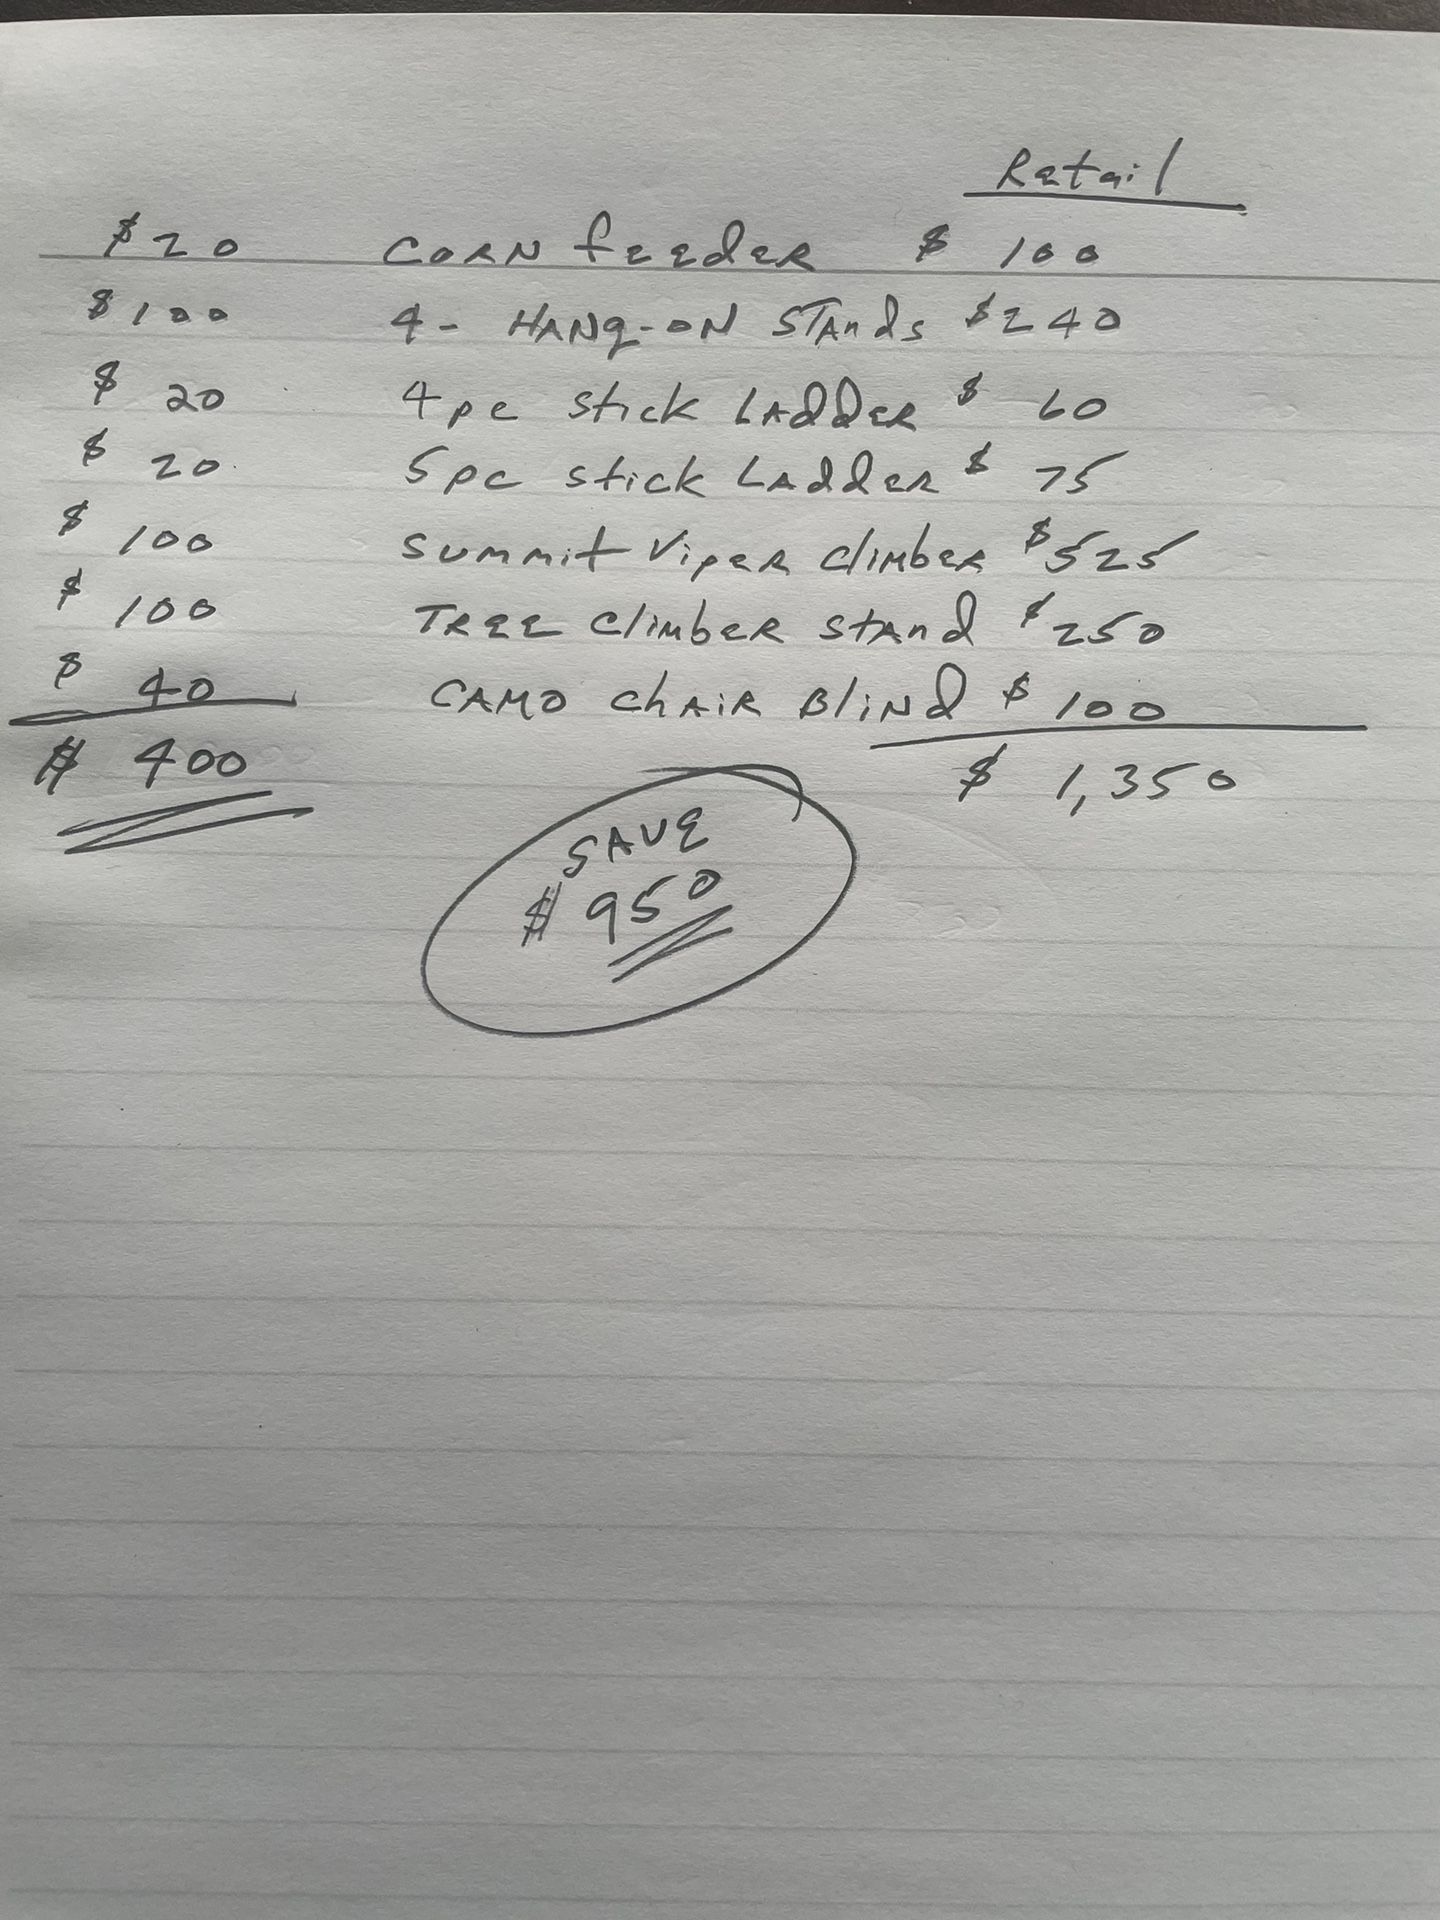 Retail
$20 CORN feeder $ 100
$100 4- HANg-ON STANds $240
$ 20 4pc stick LAddER $ 60
$ 20 5pc stick LAddeR $ 75
$ 100 summit VipeR climbeR $525
$ 100 TREE climbER stANd $250
$ 40 CAMO chAiR BliNd $ 100
$ 400 $ 1,350
SAVE
$ 950